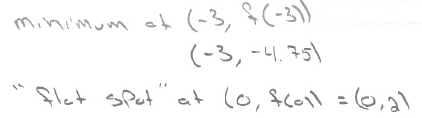 minimum at (-3, f(-3))
(-3, -4.75)
"flat spot" at (0, f(0)) = (0,2)